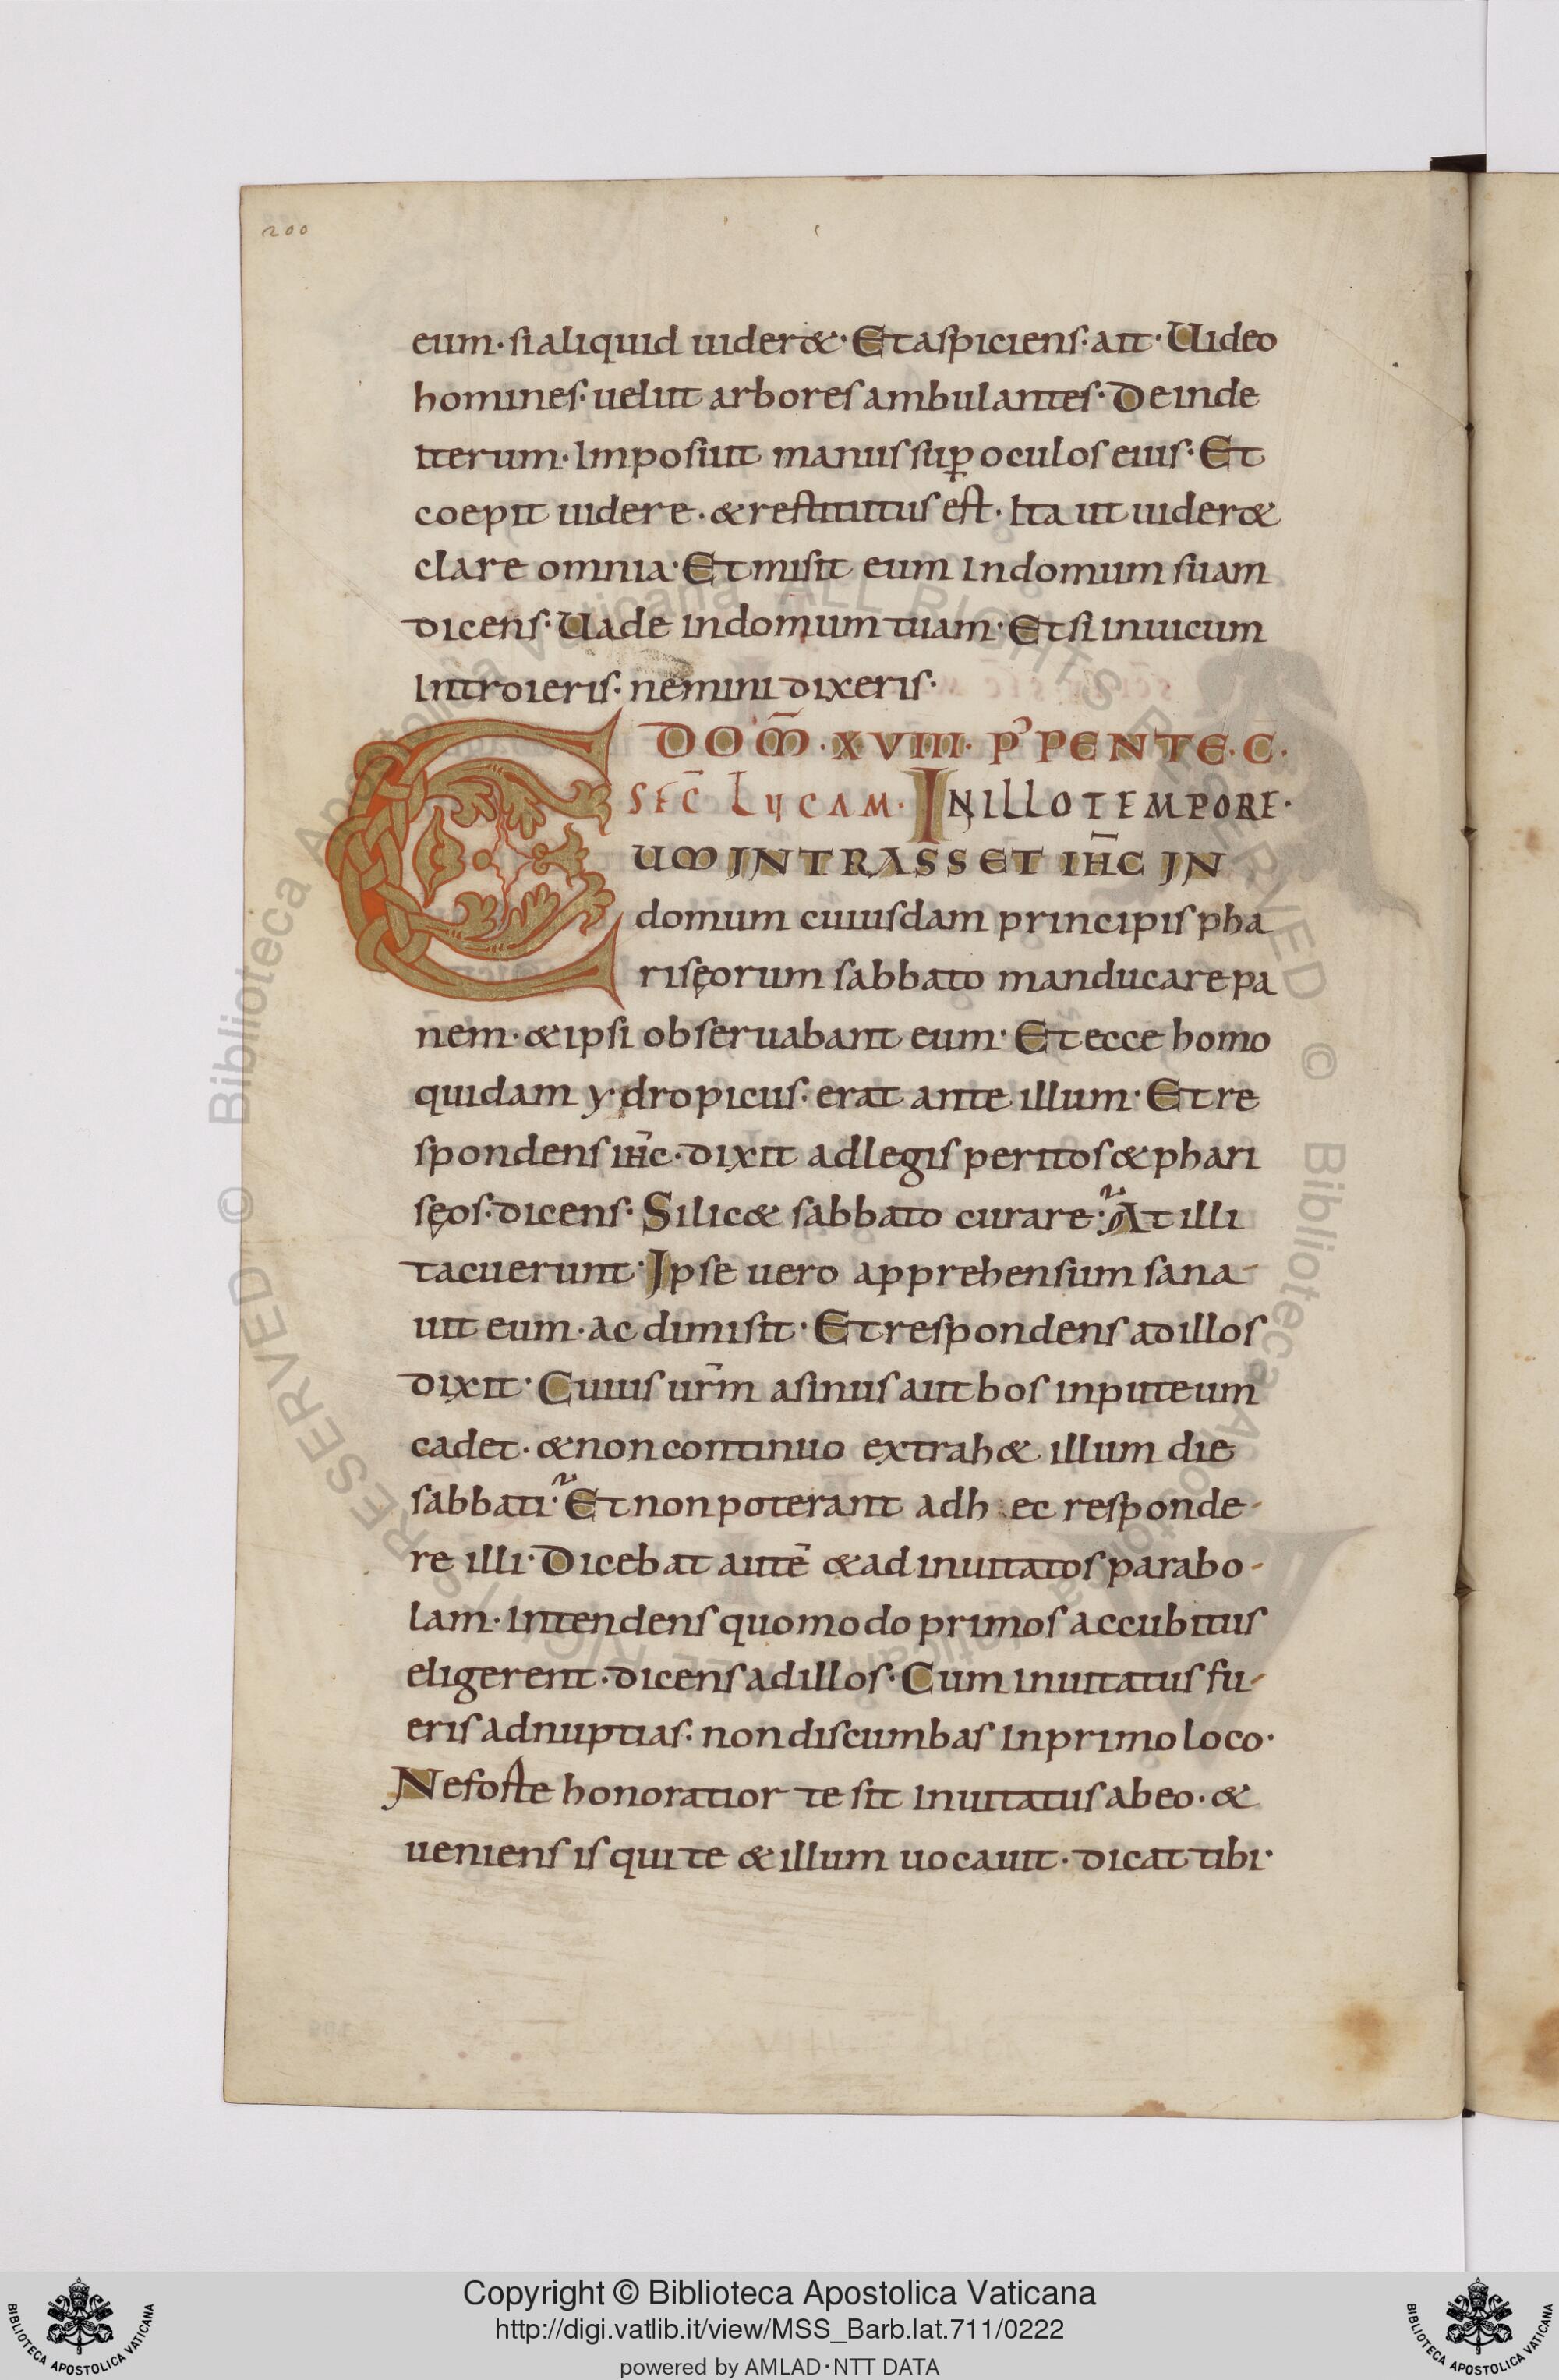 200
eum· si aliquid uider&· Et aspiciens· ait· Uideo
homines· uelut arbores ambulantes· Deinde
Iterum· Imposuit manus sup̲ oculos eius· Et
coepit uidere· & restitutus est· Ita ut uider&
clare omnia· Et misit eum In domum suam
dicens· Uade In domum tuam· Et si in uicum
Introieris· nemini dixeris·
DOM̄· XVIII· P' PENTE· C̄·
SEC̄ LUCAM· IN ILLO TEMPORE·
CUM INTRASSET IH̄C IN
domum cuiusdam principis pha
risęorum sabbato manducare pa
nem· & ipsi obseruabant eum· Et ecce homo
quidam y·dropicus· erat ante illum· Et re
spondens ih̄c· dixit ad legis peritos & phari
sęos· dicens· Si lic& sabbato curare·̃ At illi
tacuerunt· Ipse uero apprehensum sana-
uit eum· ac dimisit· Et respondens ad illos
dixit· Cuius ur̄m asinus aut bos in puteum
cadet· & non continuo extrah& illum die
sabbati·̃ Et non poterant ad h ec responde-
re illi· Dicebat autē & ad inuitatos parabo-
lam· Intendens quomodo primos accubitus
eligerent· dicens ad illos· Cum inuitatus fu-
eris ad nuptias· non discumbas In primo loco·
Ne foste honoratior te sit Inuitatus ab eo· &
ueniens is qui te & illum uocauit· dicat tibi·
© Biblioteca Apostolica Vaticana ALL RIGHTS RESERVED
Copyright © Biblioteca Apostolica Vaticana
http://digi.vatlib.it/view/MSS_Barb.lat.711/0222
powered by AMLAD·NTT DATA
BIBLIOTECA APOSTOLICA VATICANA
BIBLIOTECA APOSTOLICA VATICANA